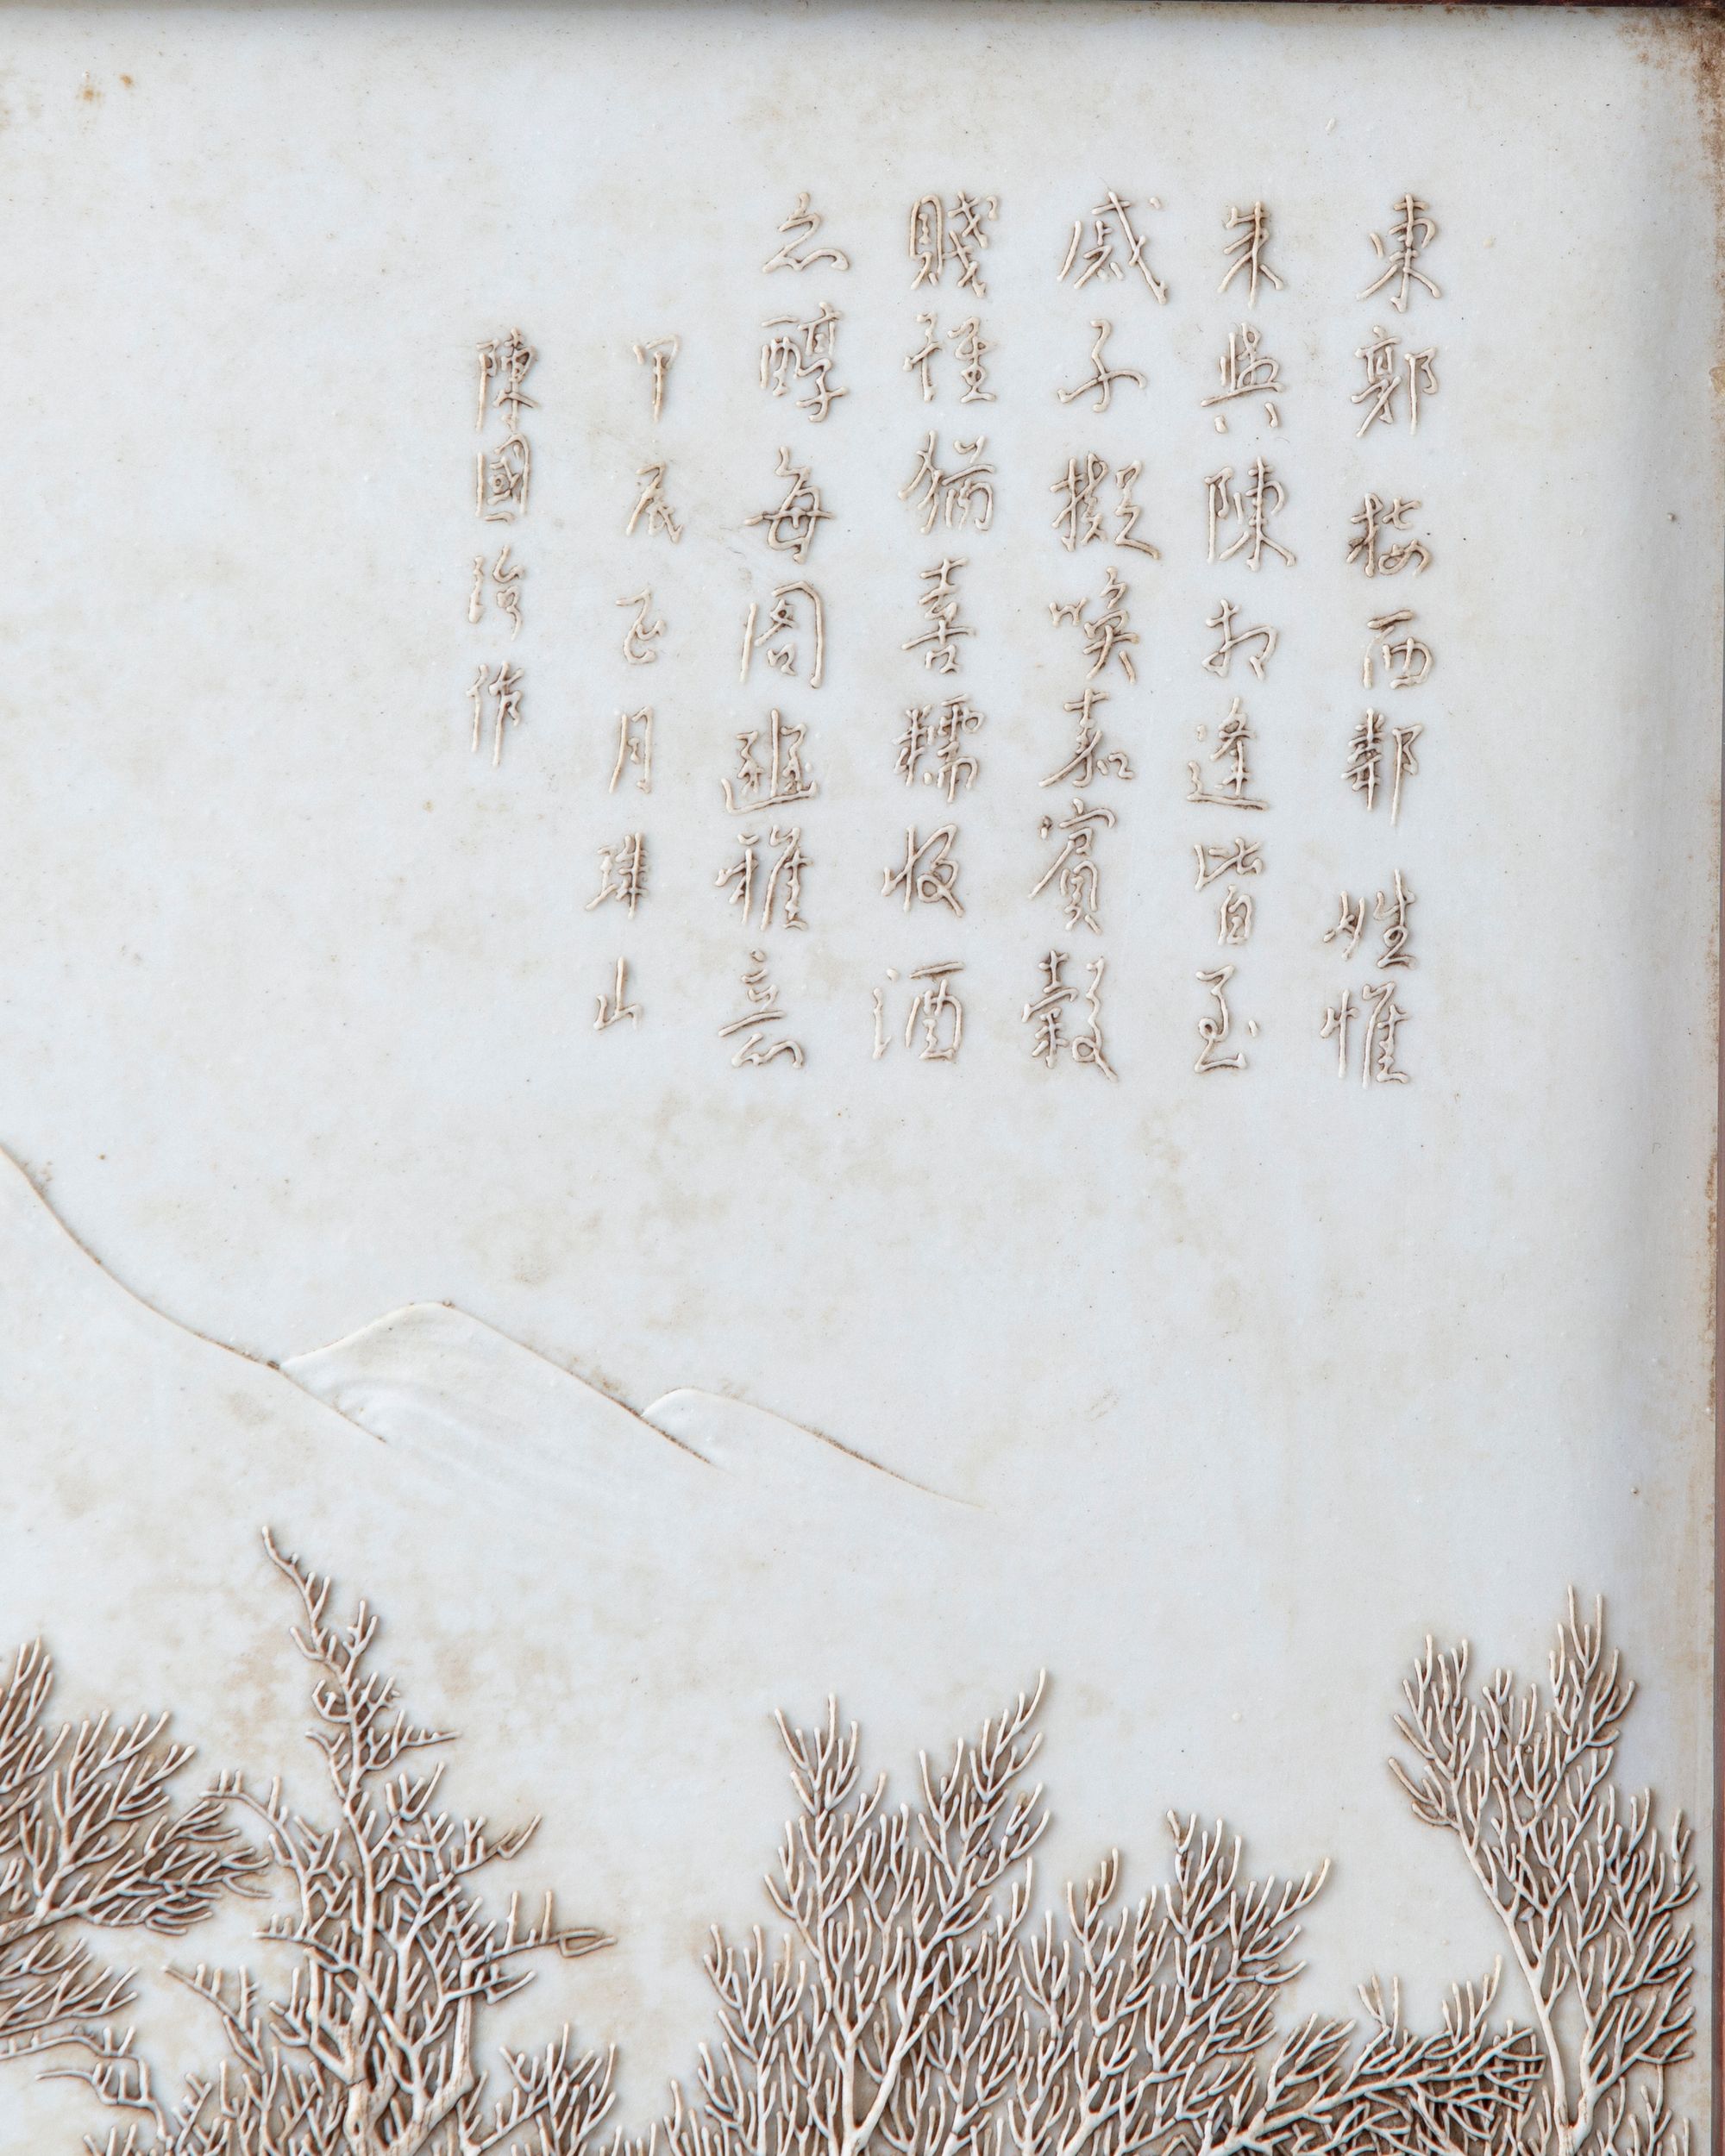 東郭接西鄰姓惟
朱與陳相逢皆至
戚子擬喚嘉賓穀
賤種猶喜糯收酒
醇每閣豳雅意
甲辰正月珠山
陳國治作